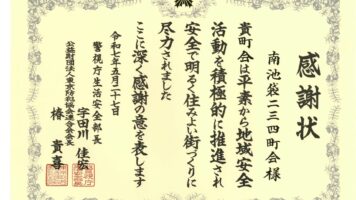 感謝状
南池袋二三四町会様
貴町会は平素から地域安全
活動を積極的に推進され
安全で明るく住みよい街づくりに
尽力されました
ここに深く感謝の意を表します
令和七年五月二十七日
警視庁生活安全部長
宇田川佳宏
公益財団法人東京防犯協会連合会会長
椿貴喜